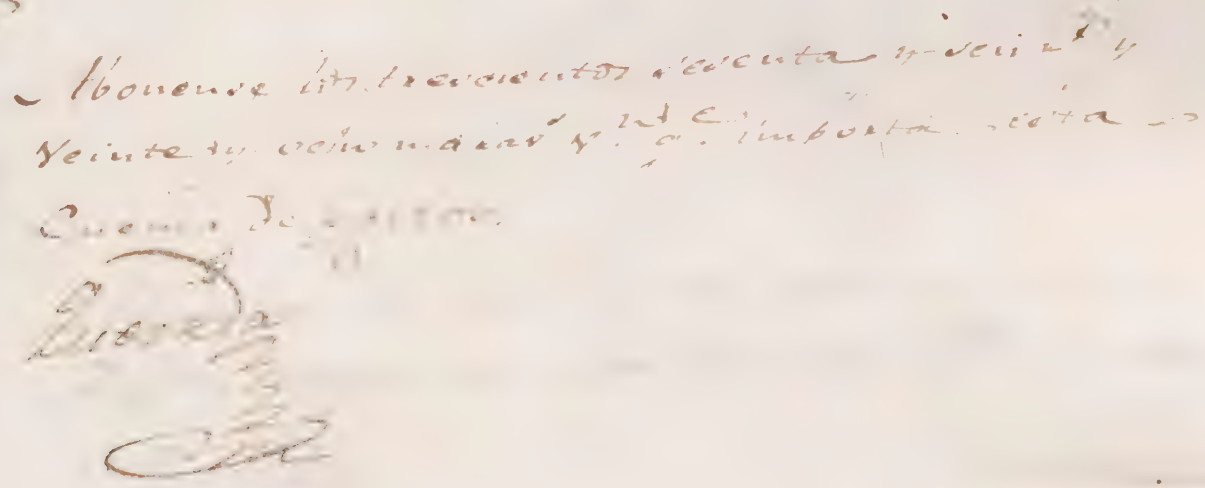 Abonense los trescientos sesenta y seis r.^s y
Veinte y ocho maras.^s v.^n q.^e importa esta
Cuenta de gastos.